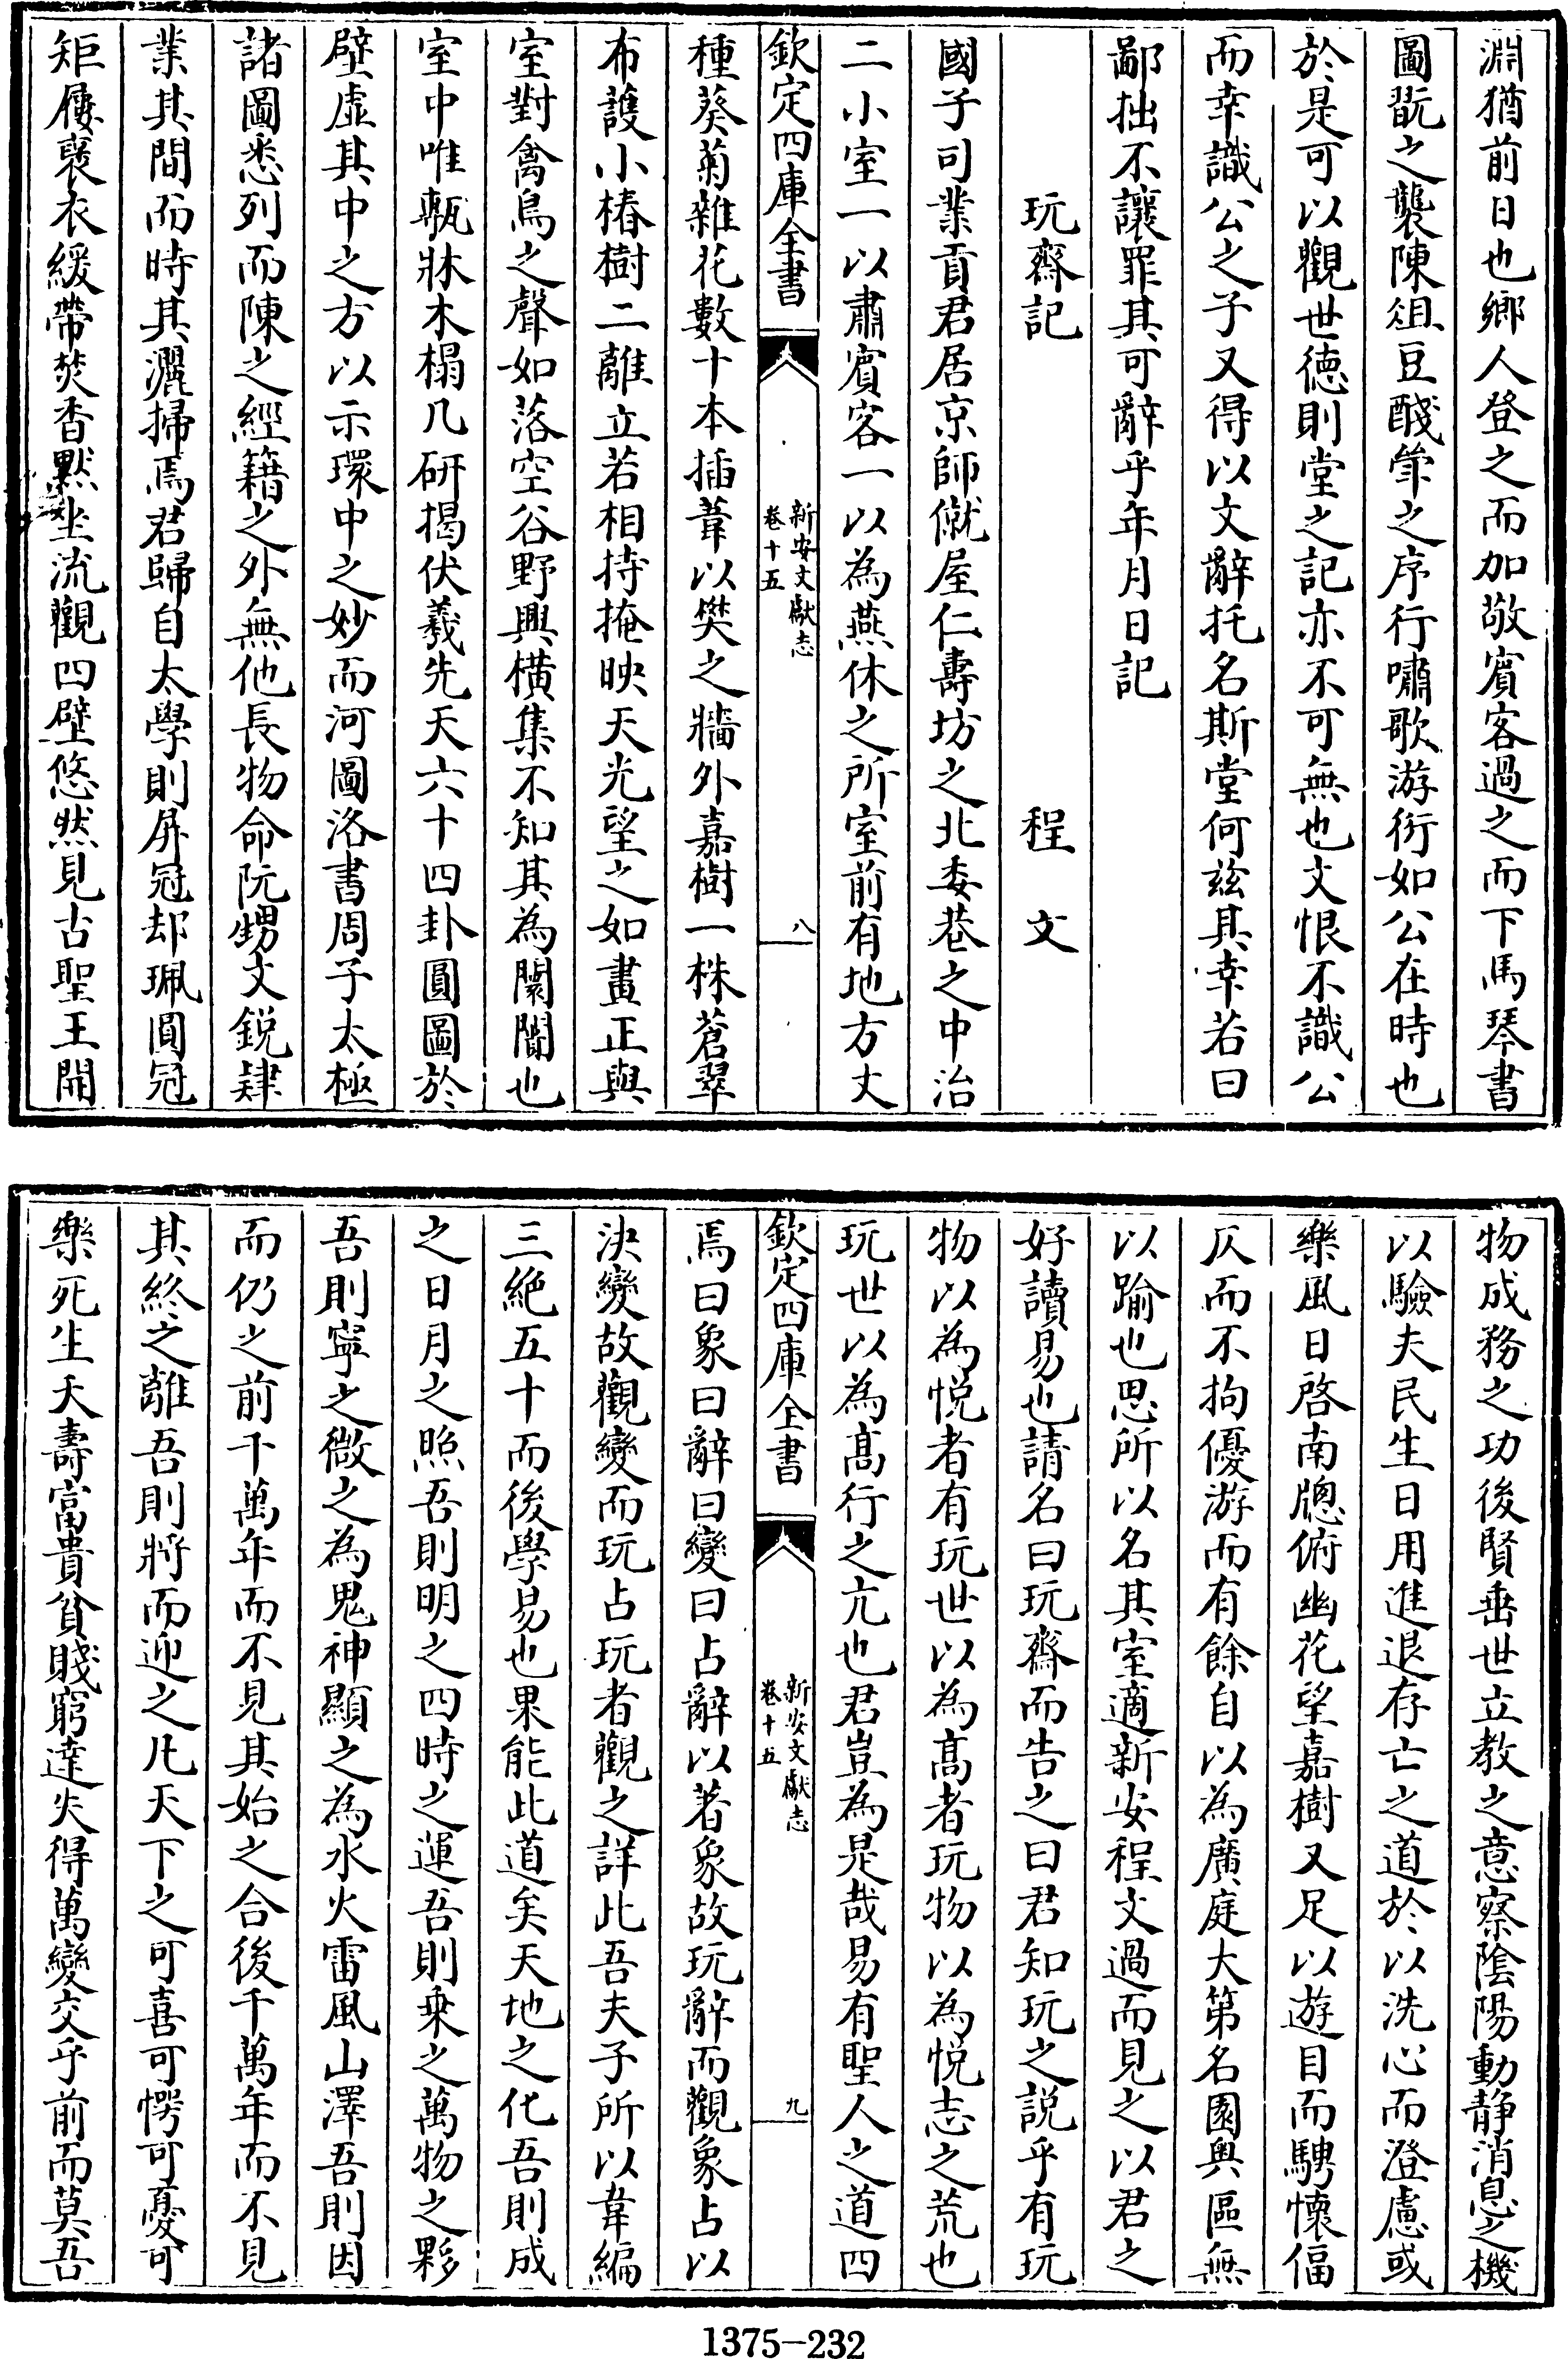 淵猶前日也鄉人登之而加敬賓客過之而下馬琴書
圖翫之襲陳俎豆醆斝之序行嘯歌游衍如公在時也
於是可以觀世徳則堂之記亦不可無也文恨不識公
而幸識公之子又得以文辭托名斯堂何兹其幸若曰
鄙拙不讓罪其可辭乎年月日記
玩齋記 程文
國子司業貢君居京師僦屋仁壽坊之北委巷之中治
二小室一以肅賓客一以為燕休之所室前有地方丈
欽定四庫全書 新安文獻志 卷十五 八
種葵菊雜花數十本插葦以樊之牆外嘉樹一株蒼翠
布護小椿樹二離立若相持掩映天光望之如畫正與
室對禽鳥之聲如落空谷野興橫集不知其為闤闠也
室中唯甎牀木榻几研揭伏羲先天六十四卦圓圖於
壁虛其中之方以示環中之妙而河圖洛書周子太極
諸圖悉列而陳之經籍之外無他長物命阮甥文銳肄
業其間而時其灑掃焉君歸自太學則屏冠却珮圓冠
矩屨褒衣緩帶焚香默坐流觀四壁悠然見古聖王開
物成務之功後賢垂世立教之意察陰陽動靜消息之機
以驗夫民生日用進退存亡之道於以洗心而澄慮或
樂風日啓南牕俯幽花望嘉樹又足以遊目而騁懷偪
仄而不拘優游而有餘自以為廣庭大第名園奥區無
以踰也思所以名其室適新安程文過而見之以君之
好讀易也請名曰玩齋而告之曰君知玩之說乎有玩
物以為悅者有玩世以為高者玩物以為悅志之荒也
玩世以為髙行之亢也君豈為是哉易有聖人之道四
欽定四庫全書 新安文獻志 卷十五 九
焉曰象曰辭曰變曰占辭以著象故玩辭而觀象占以
決變故觀變而玩占玩者觀之詳此吾夫子所以韋編
三絶五十而後學易也果能此道矣天地之化吾則成
之日月之照吾則明之四時之運吾則乘之萬物之夥
吾則寧之微之為鬼神顯之為水火雷風山澤吾則因
而仍之前千萬年而不見其始之合後千萬年而不見
其終之離吾則將而迎之凡天下之可喜可愕可憂可
樂死生夭壽富貴貧賤窮達失得萬變交乎前而莫吾
1375-232